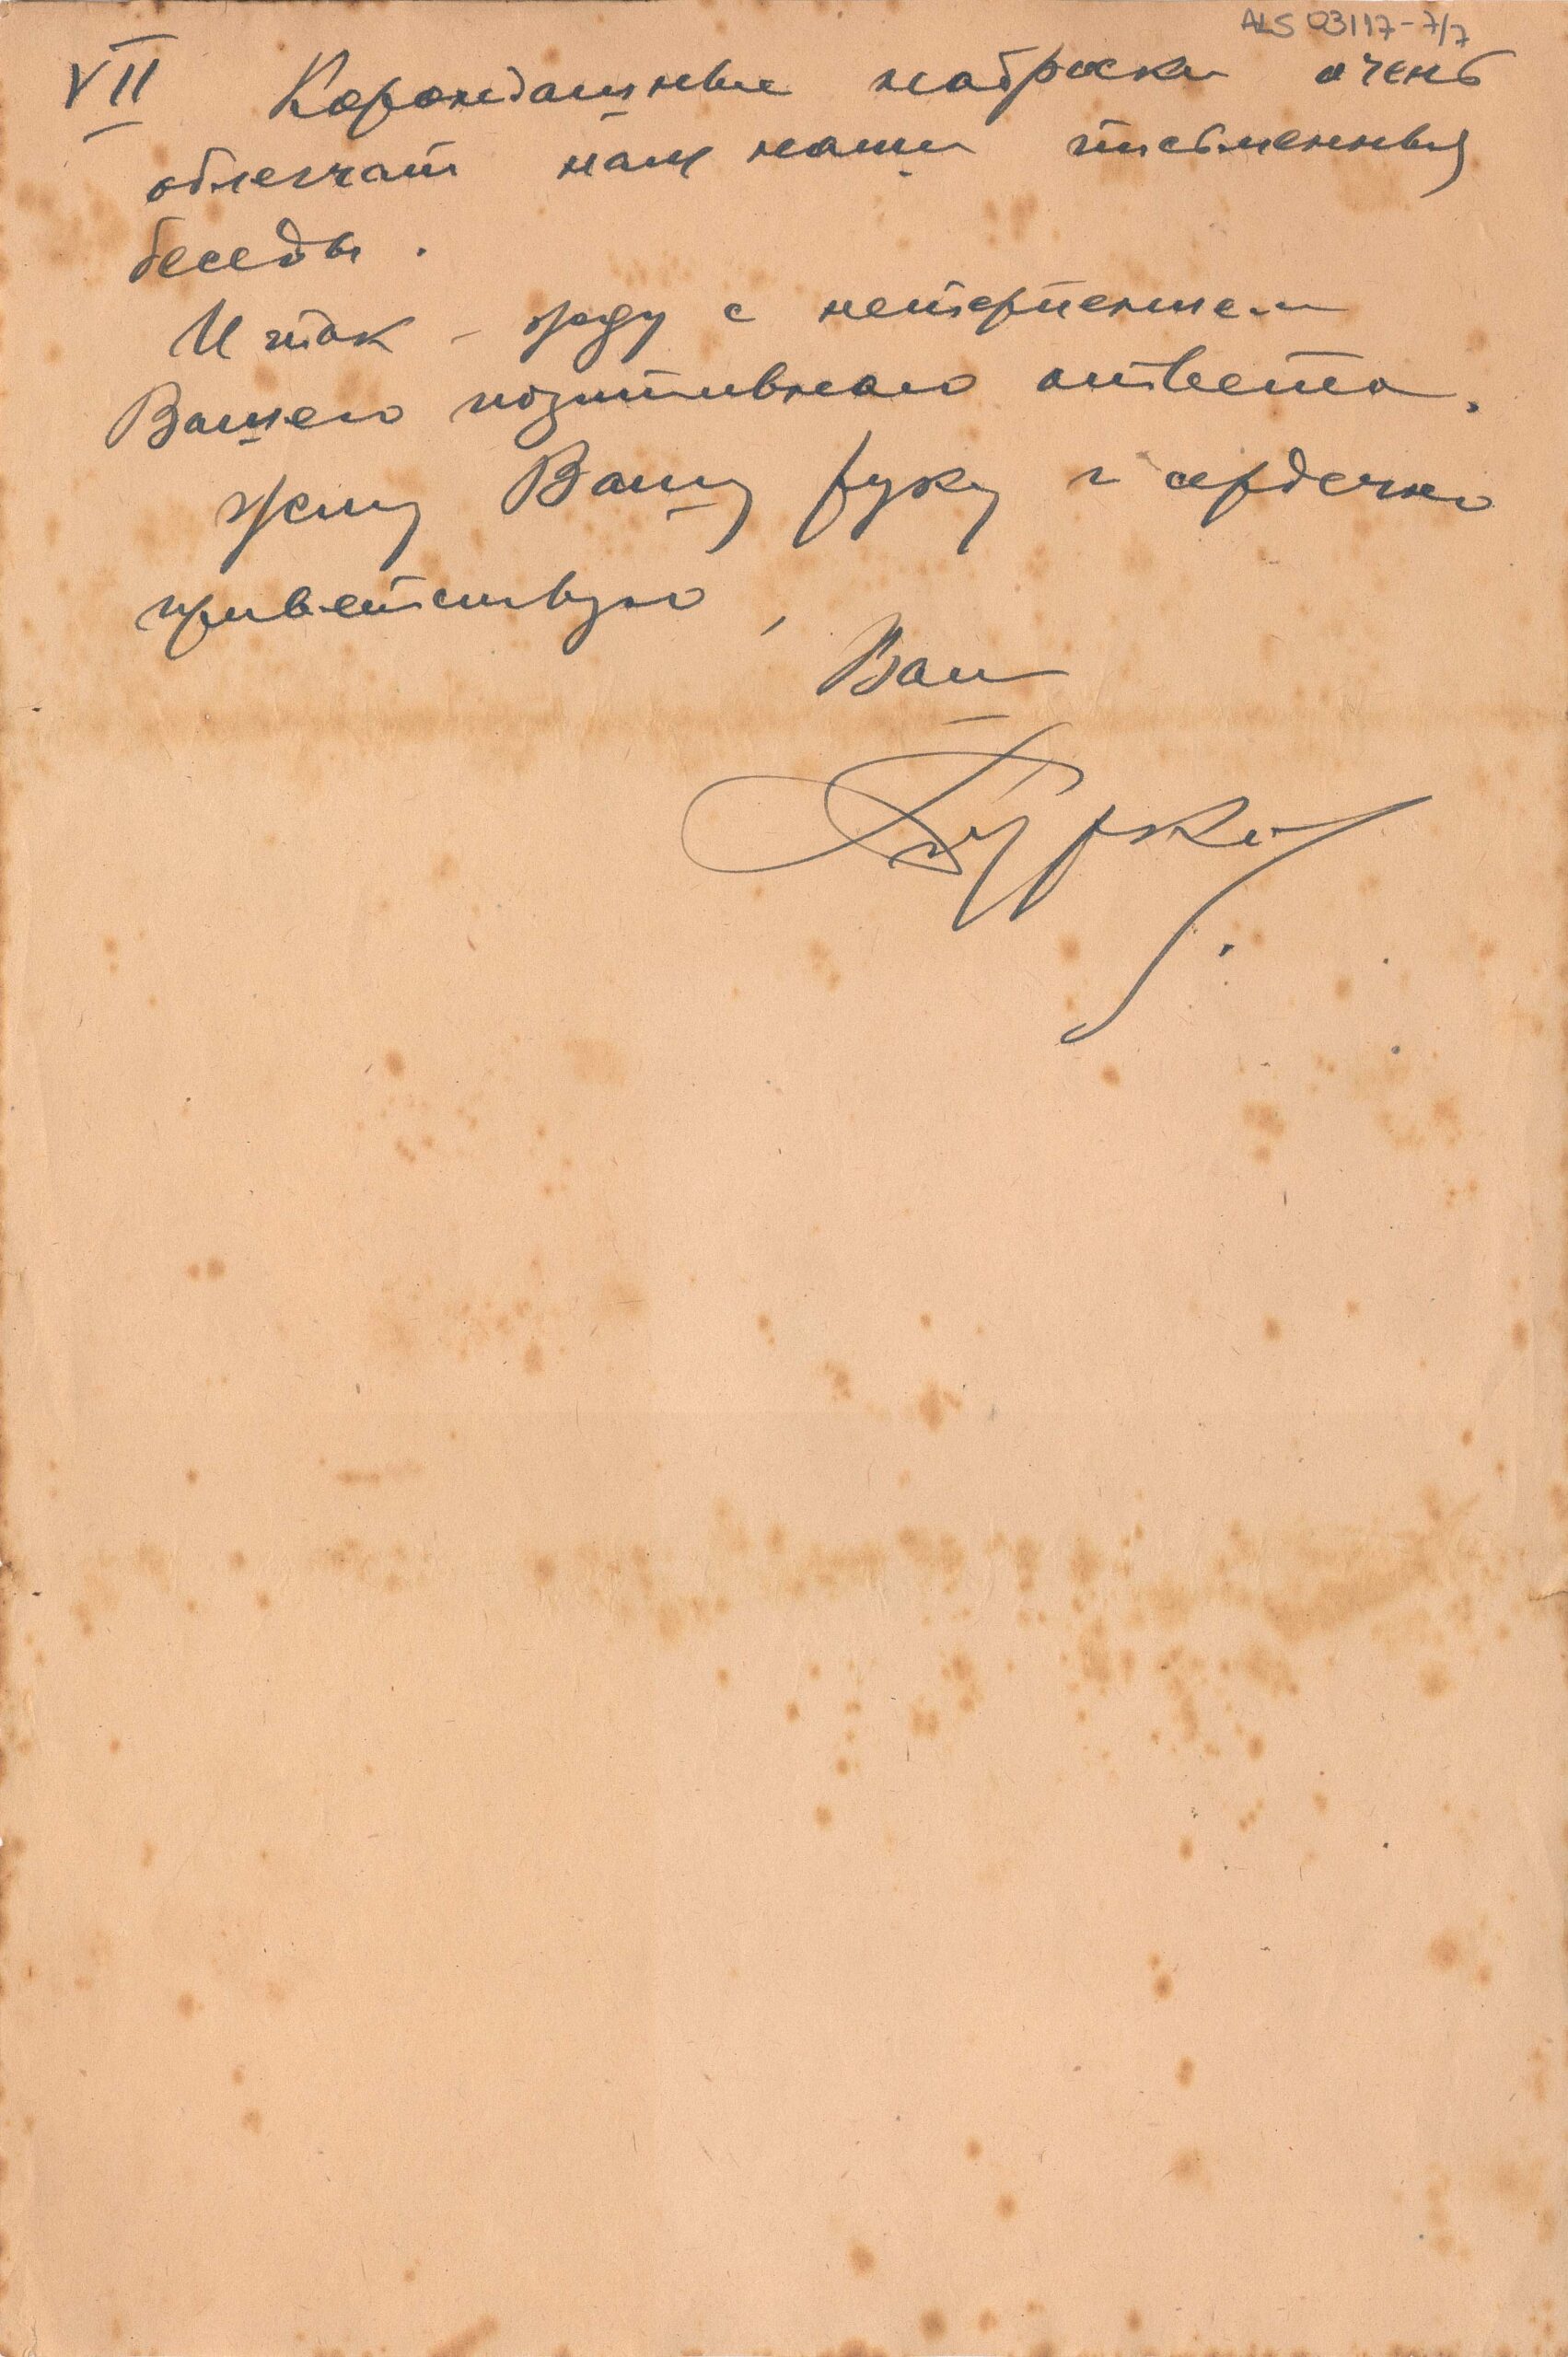 ALS 03117-7/7
VII Карандашные наброски очень
облегчат нам наши письменныя
беседы.
Итак - жду с нетерпением
Вашего позитивного ответа.
Жму Вашу руку и сердечно
приветствую,
Ваш